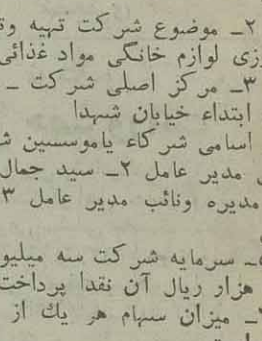 ۲ـ موضوع شرکت تهیه
لوازم خانگی مواد غذائی
۳ـ مرکز اصلی شرکت ـ
ابتداء خیابان شهدا
اسامی شرکاء یاموسسین
مدیر عامل ۲ـ سید جمال
مدیره ونائب مدیر عامل ۳
ـ سرمایه شرکت سه
هزار ریال آن نقدا پرداخت
ـ میزان سهام هر یك از